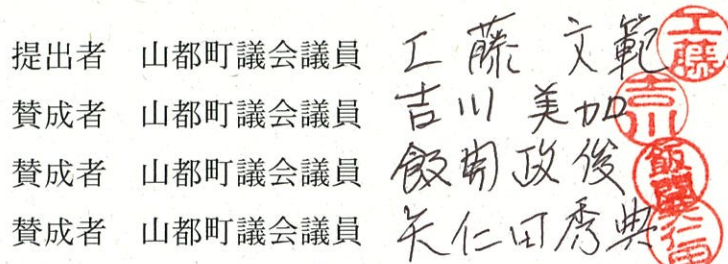 提出者 山都町議会議員 工藤文範 工藤
賛成者 山都町議会議員 吉川美加 吉川
賛成者 山都町議会議員 飯開政俊 飯開
賛成者 山都町議会議員 矢仁田秀典 矢仁田